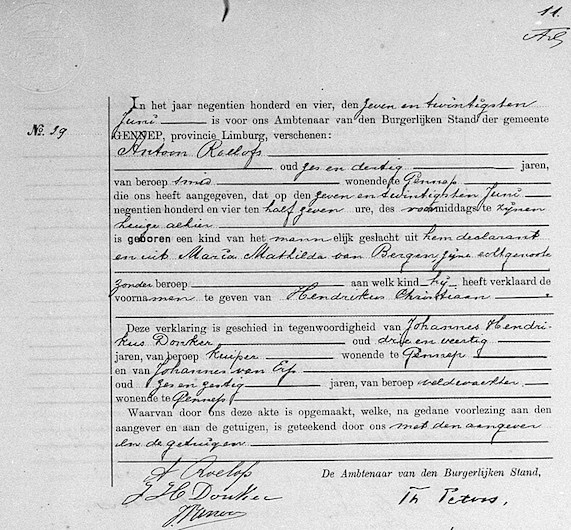 11.
In het jaar negentien honderd en vier, den zeven en twintigsten
Juni is voor ons Ambtenaar van den Burgerlijken Stand der gemeente
No. 39
GENNEP, provincie Limburg, verschenen:
Antoon Roelofs
oud zes en dertig jaren,
van beroep smid wonende te Gennep
die ons heeft aangegeven, dat op den zeven en twintigsten Juni
negentien honderd en vier ten half zeven ure, des voormiddags te zijnen
huize alhier
is geboren een kind van het mannelijk geslacht uit hem declarant
en uit Maria Mathilda van Bergen, zijne echtgenoote
zonder beroep aan welk kind hij heeft verklaard de
voornamen te geven van Hendrikus Christiaan
Deze verklaring is geschied in tegenwoordigheid van Johannes Hendri-
kus Donker oud drie en veertig
jaren, van beroep kuiper wonende te Gennep
en van Johannes van Erp
oud zes en zestig jaren, van beroep veldwachter
wonende te Gennep
Waarvan door ons deze akte is opgemaakt, welke, na gedane voorlezing aan den
aangever en aan de getuigen, is geteekend door ons met den aangever
en de getuigen.
A Roelofs
De Ambtenaar van den Burgerlijken Stand,
J H Donker
Th Peters.